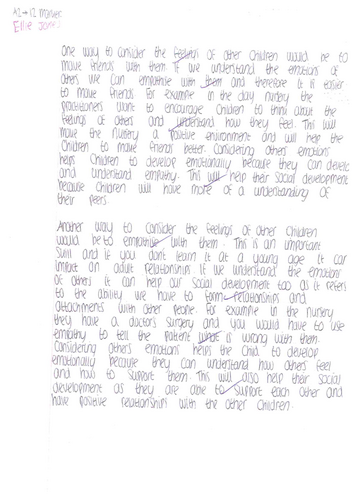 Ellie Jones
One way to consider the feelings of other children would be to
make friends with them. If we understand the emotions of
others we can empathise with them and therefore it is easier
to make friends for example in the day nursery the
practitioners want to encourage children to think about the
feelings of others and understand how they feel. This will
make the nursery a positive environment and will help the
children to make friends better. Considering others emotions
helps children to develop emotionally because they can develop
and understand empathy. This will help their social development
because children will have more of a understanding of
their peers.
Another way to consider the feelings of other children
would be to empathise with them. This is an important
skill and if you dont learn it at a young age it can
impact on adult relationships. If we understand the emotions
of others it can help our social development too as it refers
to the ability we have to form relationships and
attachments with other people. For example in the nursery
they have a doctors surgery and you would have to use
empathy to tell the patient what is wrong with them.
Considering others emotions helps the child to develop
emotionally because they can understand how others feel
and how to support them. This will also help their social
development as they are able to support each other and
have positive relationships with the other children.